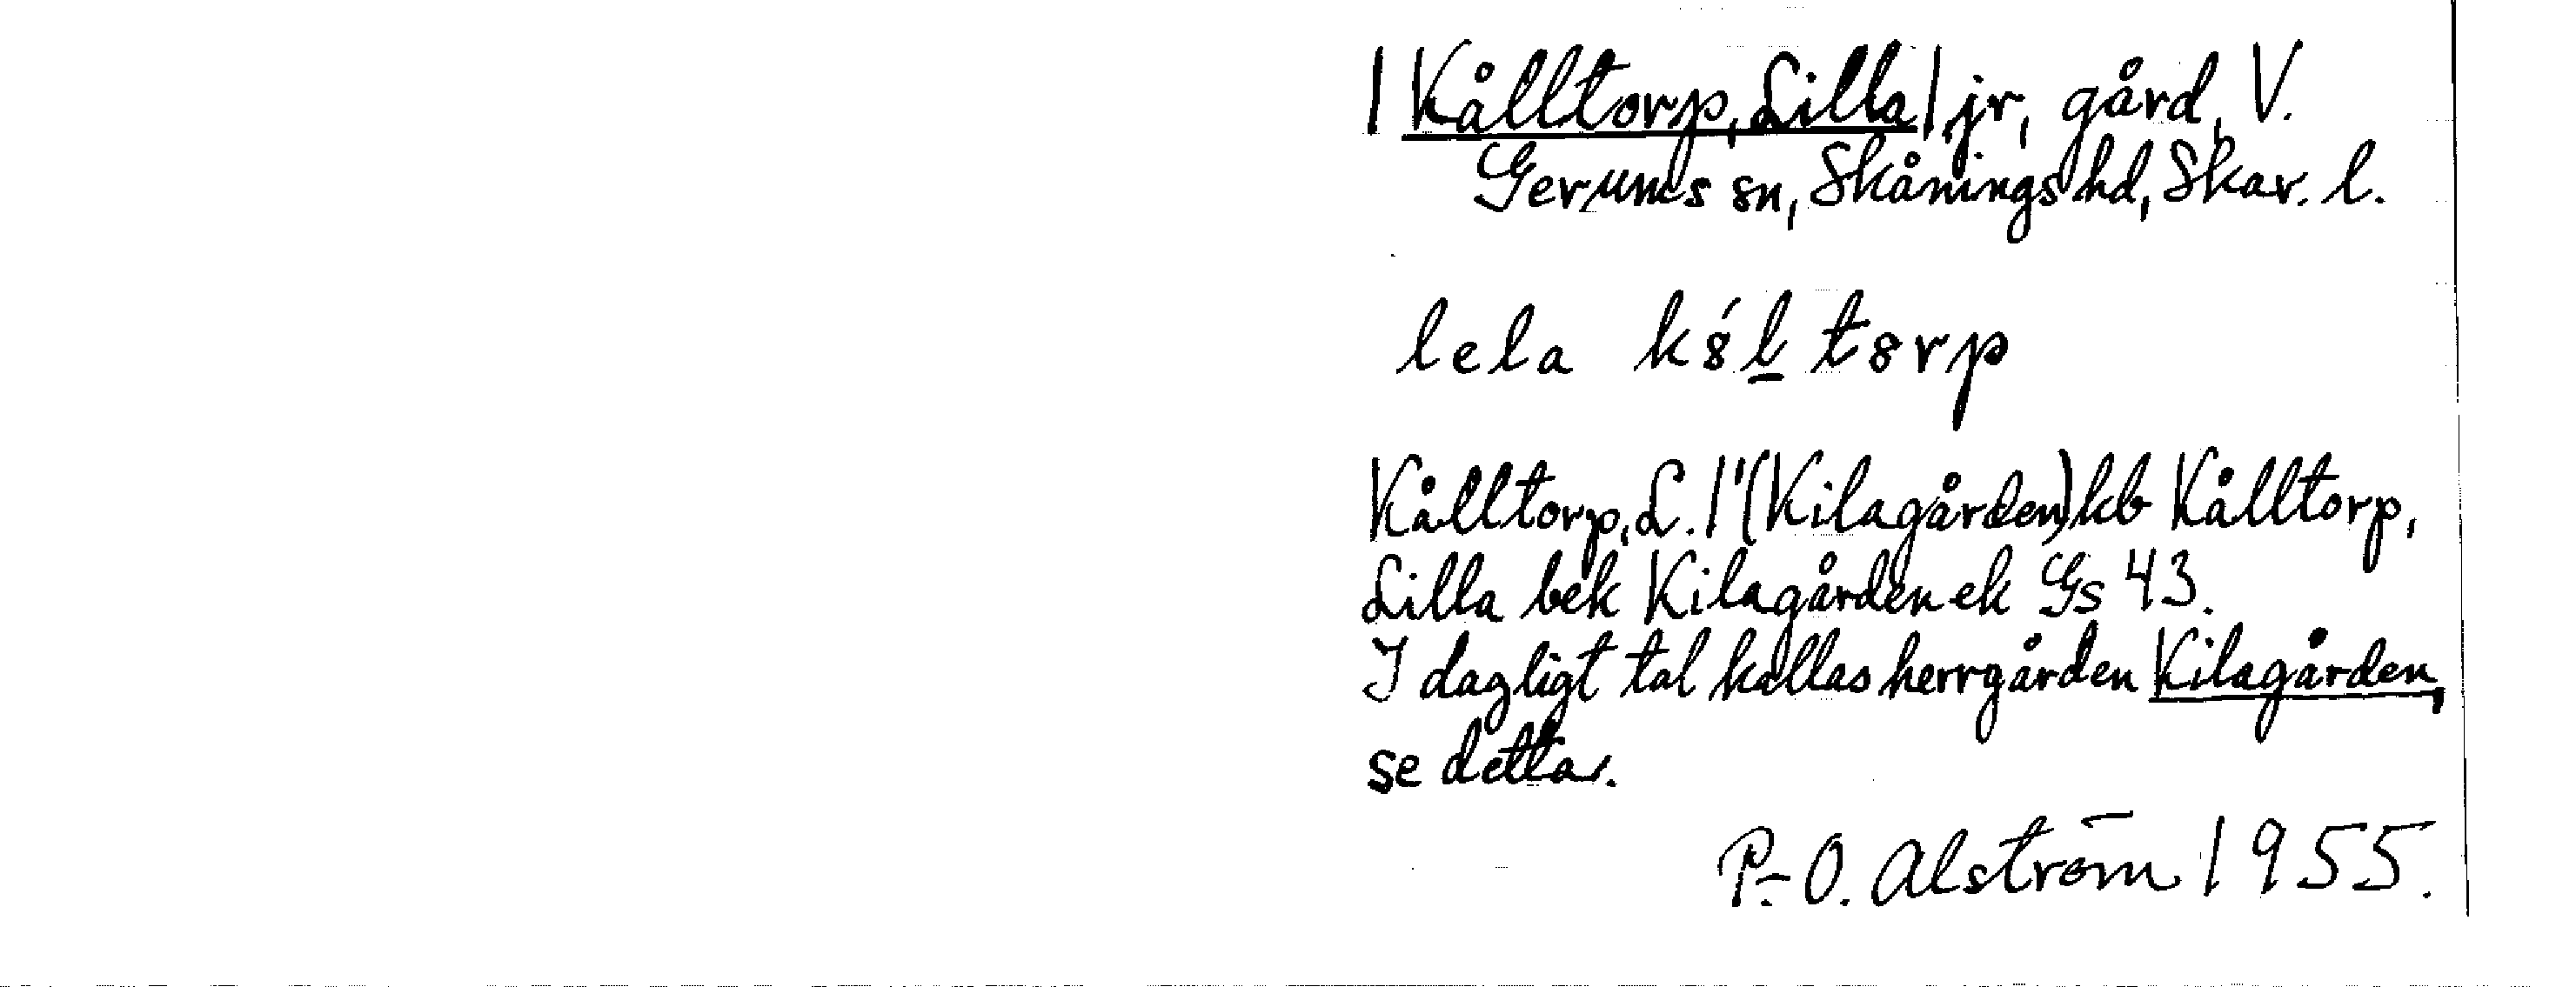 /Kålltorp, Lilla/ jr, gård, V.
Gerums sn, Skånings hd, Skar. l.
lela kȣ́l̲tȣrp
Kålltorp, L. 1' (Kilagården) kb Kålltorp,
Lilla bek Kilagården ek Gs 43.
I dagligt tal kallas herrgården Kilagården,
se detta.
P.-O. Alström 1955.